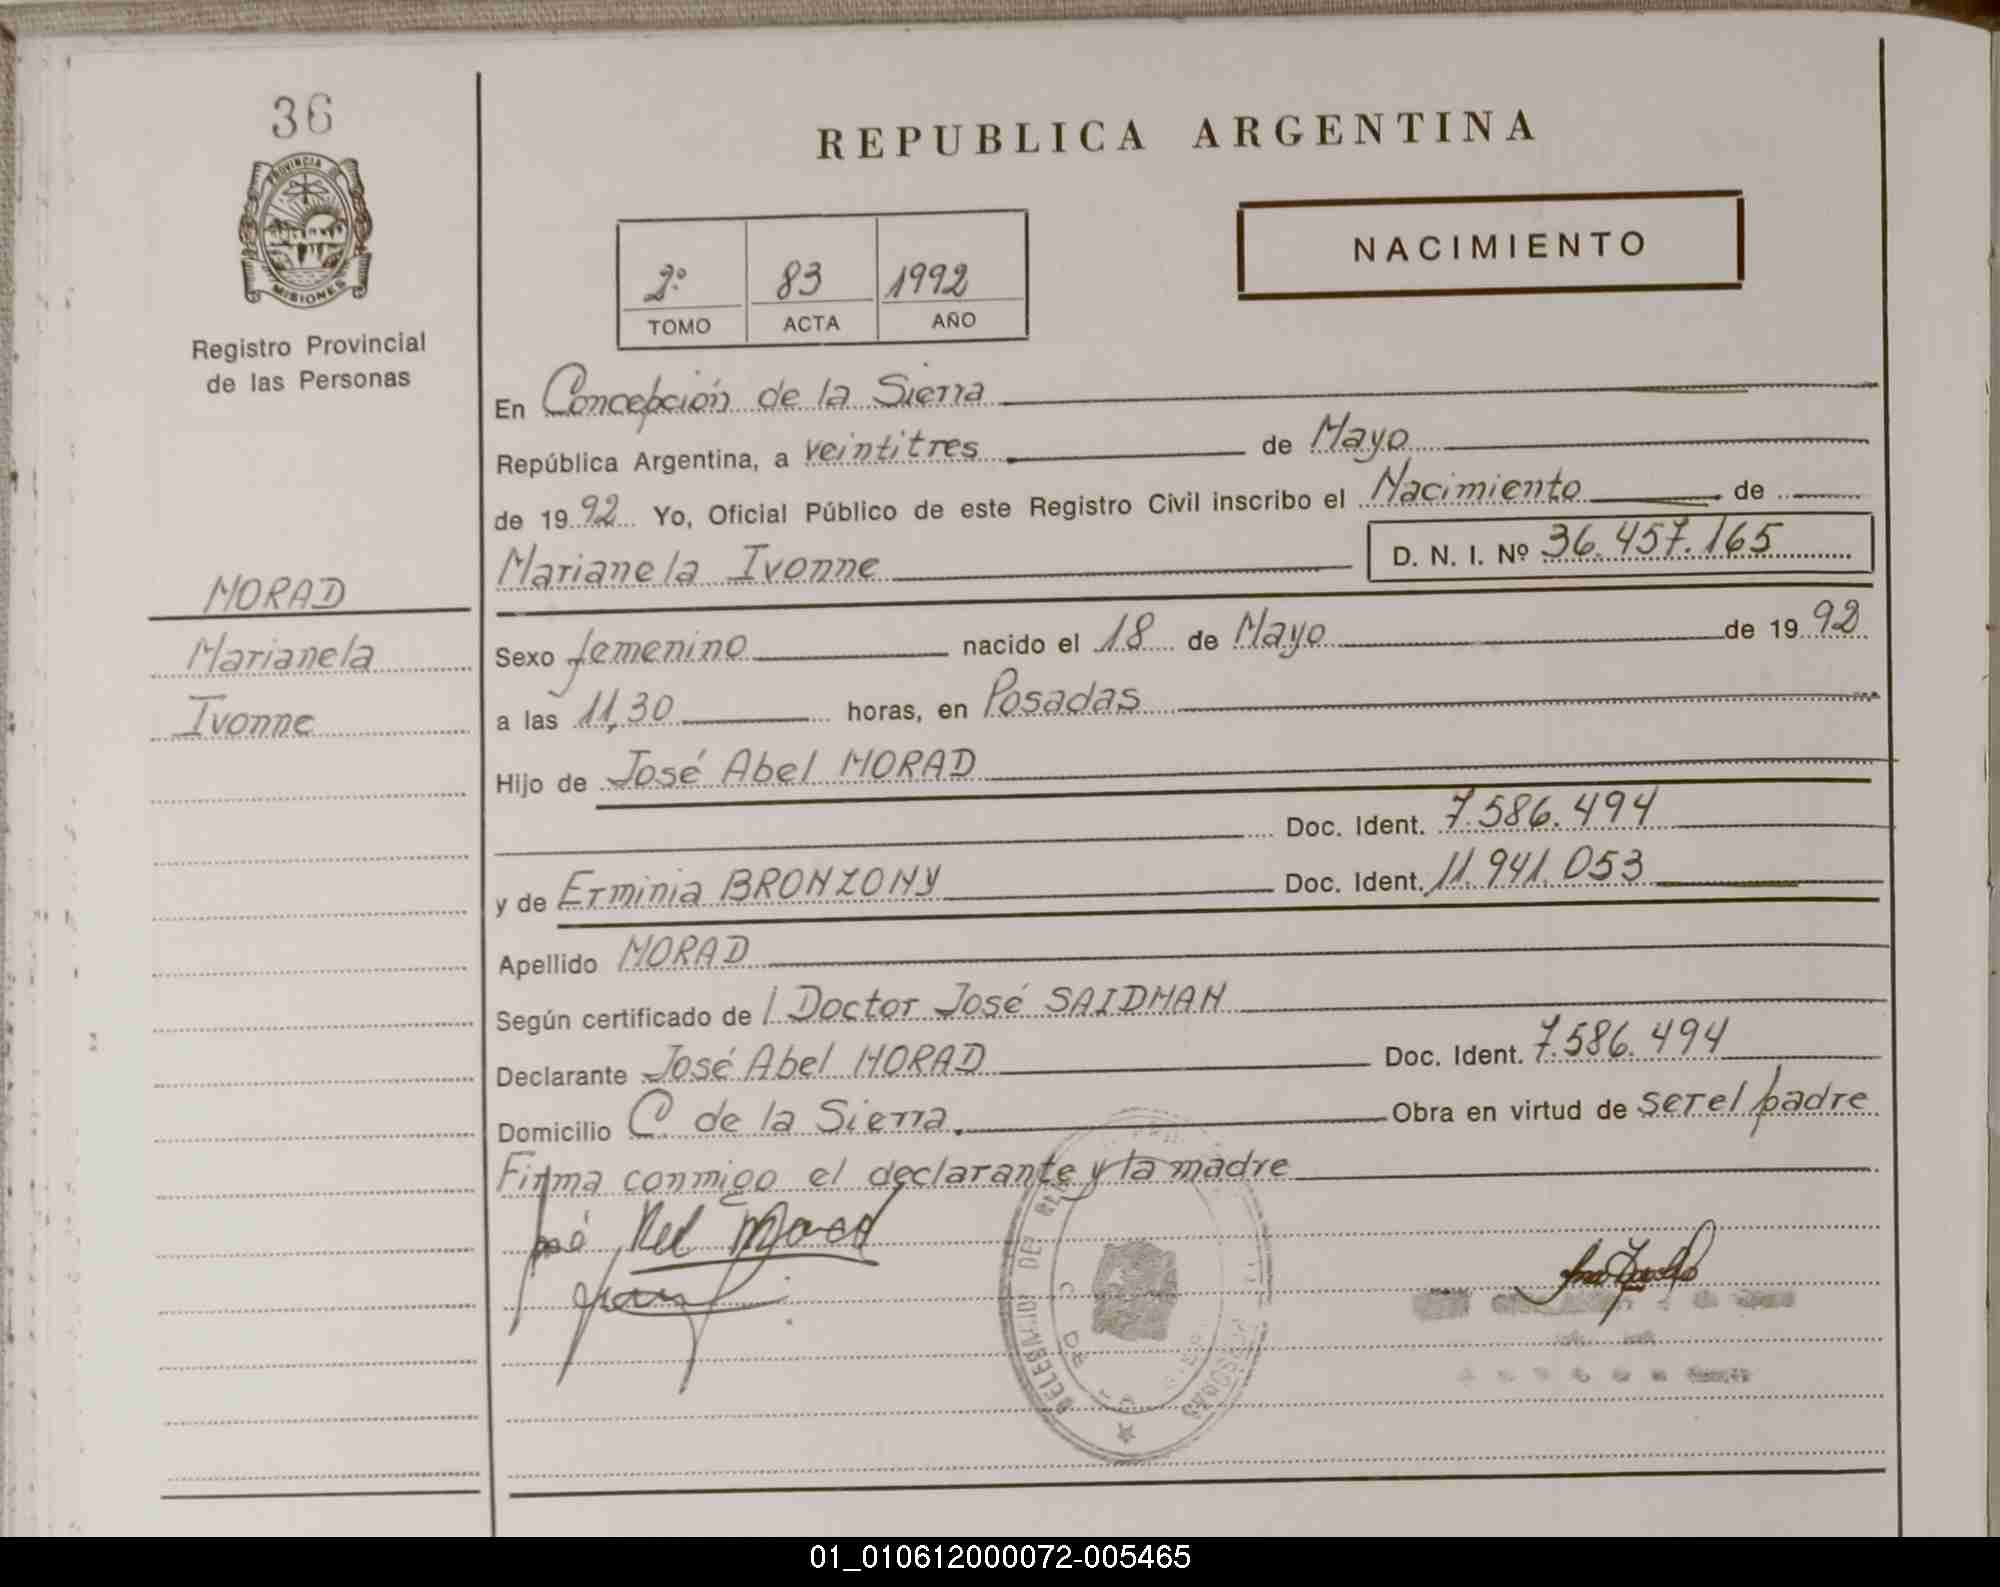 36
PROVINCIA
MISIONES
Registro Provincial
de las Personas
MORAD
Marianela
Ivonne
REPUBLICA ARGENTINA
NACIMIENTO
2º 83 1992
TOMO ACTA AÑO
En Concepción de la Sierra
República Argentina, a veintitres de Mayo
de 1992 Yo, Oficial Público de este Registro Civil inscribo el Nacimiento de
Marianela Ivonne D. N. I. Nº 36.457.165
Sexo femenino nacido el 18 de Mayo de 1992
a las 11,30 horas, en Posadas
Hijo de José Abel MORAD
Doc. Ident. 7.586.494
y de Erminia BRONZONY Doc. Ident. 11.941.053
Apellido MORAD
Según certificado de l Doctor José SAIDMAN
Declarante José Abel MORAD Doc. Ident. 7.586.494
Domicilio C. de la Sierra. Obra en virtud de ser el padre
Firma conmigo el declarante y la madre
01_010612000072-005465